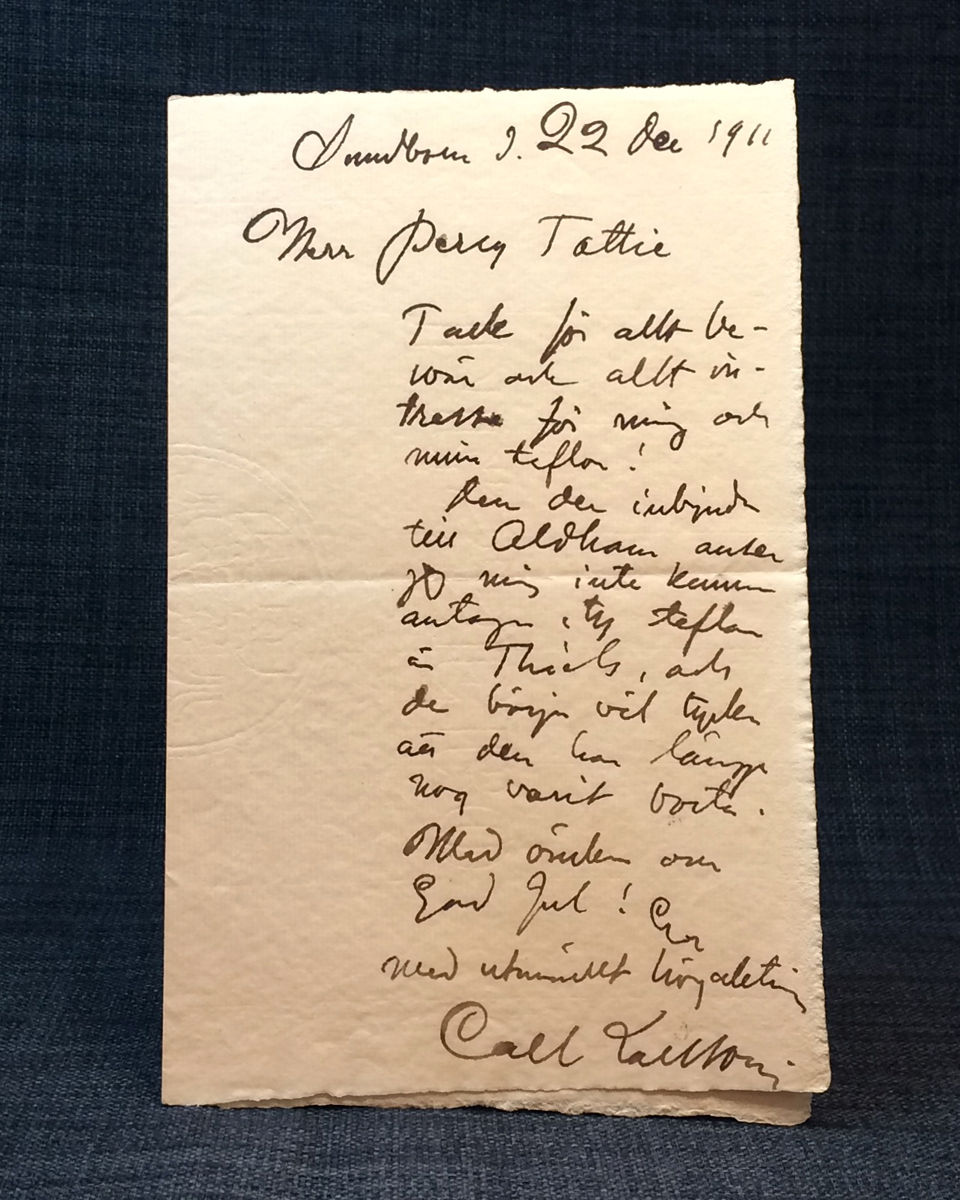 Sundborn d. 22 Dec 1911
Herr Percy Tattie
Tack för allt be-
svär och allt in-
tresse för mig och
min taflor!
Den der inbjudn
till Oldham anser
jag mig inte kunna
antaga, ty taflan
är Thiels, och
de börja väl tycka
att den har länge
nog varit borta.
Med önskan om
God Jul! Er
med utmärkt högaktning
Carl Larsson